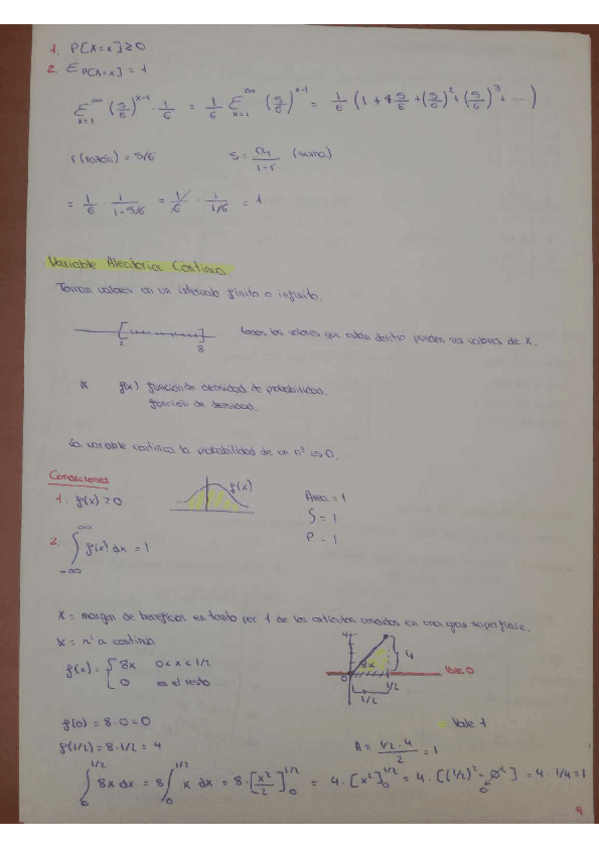 1. P[X=x] ≥ 0
2. Σ P[X=x] = 1
Σ x=1 ∞ (5/6)^x-1 · 1/6 = 1/6 Σ x=1 ∞ (5/6)^x-1 = 1/6 (1 + 5/6 + (5/6)² + (5/6)³ + ...)
r (razón) = 5/6 S = a₁/1-r (suma)
= 1/6 · 1/1-5/6 = 1/6 · 1/1/6 = 1
Variable Aleatoria Continua.
Toman valores en un intervalo finito o infinito.
2 8 todos los valores que están dentro pueden ser valores de X.
X f(x) función de densidad de probabilidad.
función de densidad.
La variable continua la probabilidad de un nº es 0.
Condiciones
1. f(x) ≥ 0 f(x) Área = 1
S = 1
2. ∫ -∞ ∞ f(x) dx = 1 P = 1
X = margen de beneficios en tanto por 1 de los artículos vendidos en una gran superficie.
X = nº a continua
f(x) = { 8x 0 < x < 1/2
0 en el resto
4 8x 4 Vale 0
0 1/2
1/2
f(0) = 8·0 = 0 Vale 1
f(1/2) = 8·1/2 = 4 A = 1/2·4/2 = 1
∫ 0 1/2 8x dx = 8 ∫ 0 1/2 x dx = 8·[x²/2] 0 1/2 = 4·[x²] 0 1/2 = 4·[(1/2)² - 0²] = 4·1/4 = 1
0